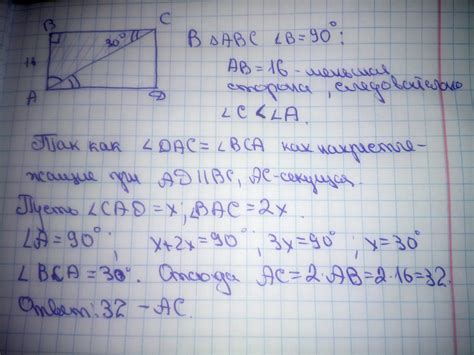 B
C
30°
16
A
D
В △ABC ∠B=90°:
AB=16 - меньшая
сторона, следовательно
∠C < ∠A.
Так как ∠DAC = ∠BCA как накрестле-
жащие при AD∥BC, AC-секущая.
Пусть ∠CAD = x; ∠BAC = 2x.
∠A = 90°; x+2x = 90°; 3x = 90°; x = 30°
∠BCA = 30°. Отсюда AC = 2·AB = 2·16 = 32.
Ответ: 32 - AC.